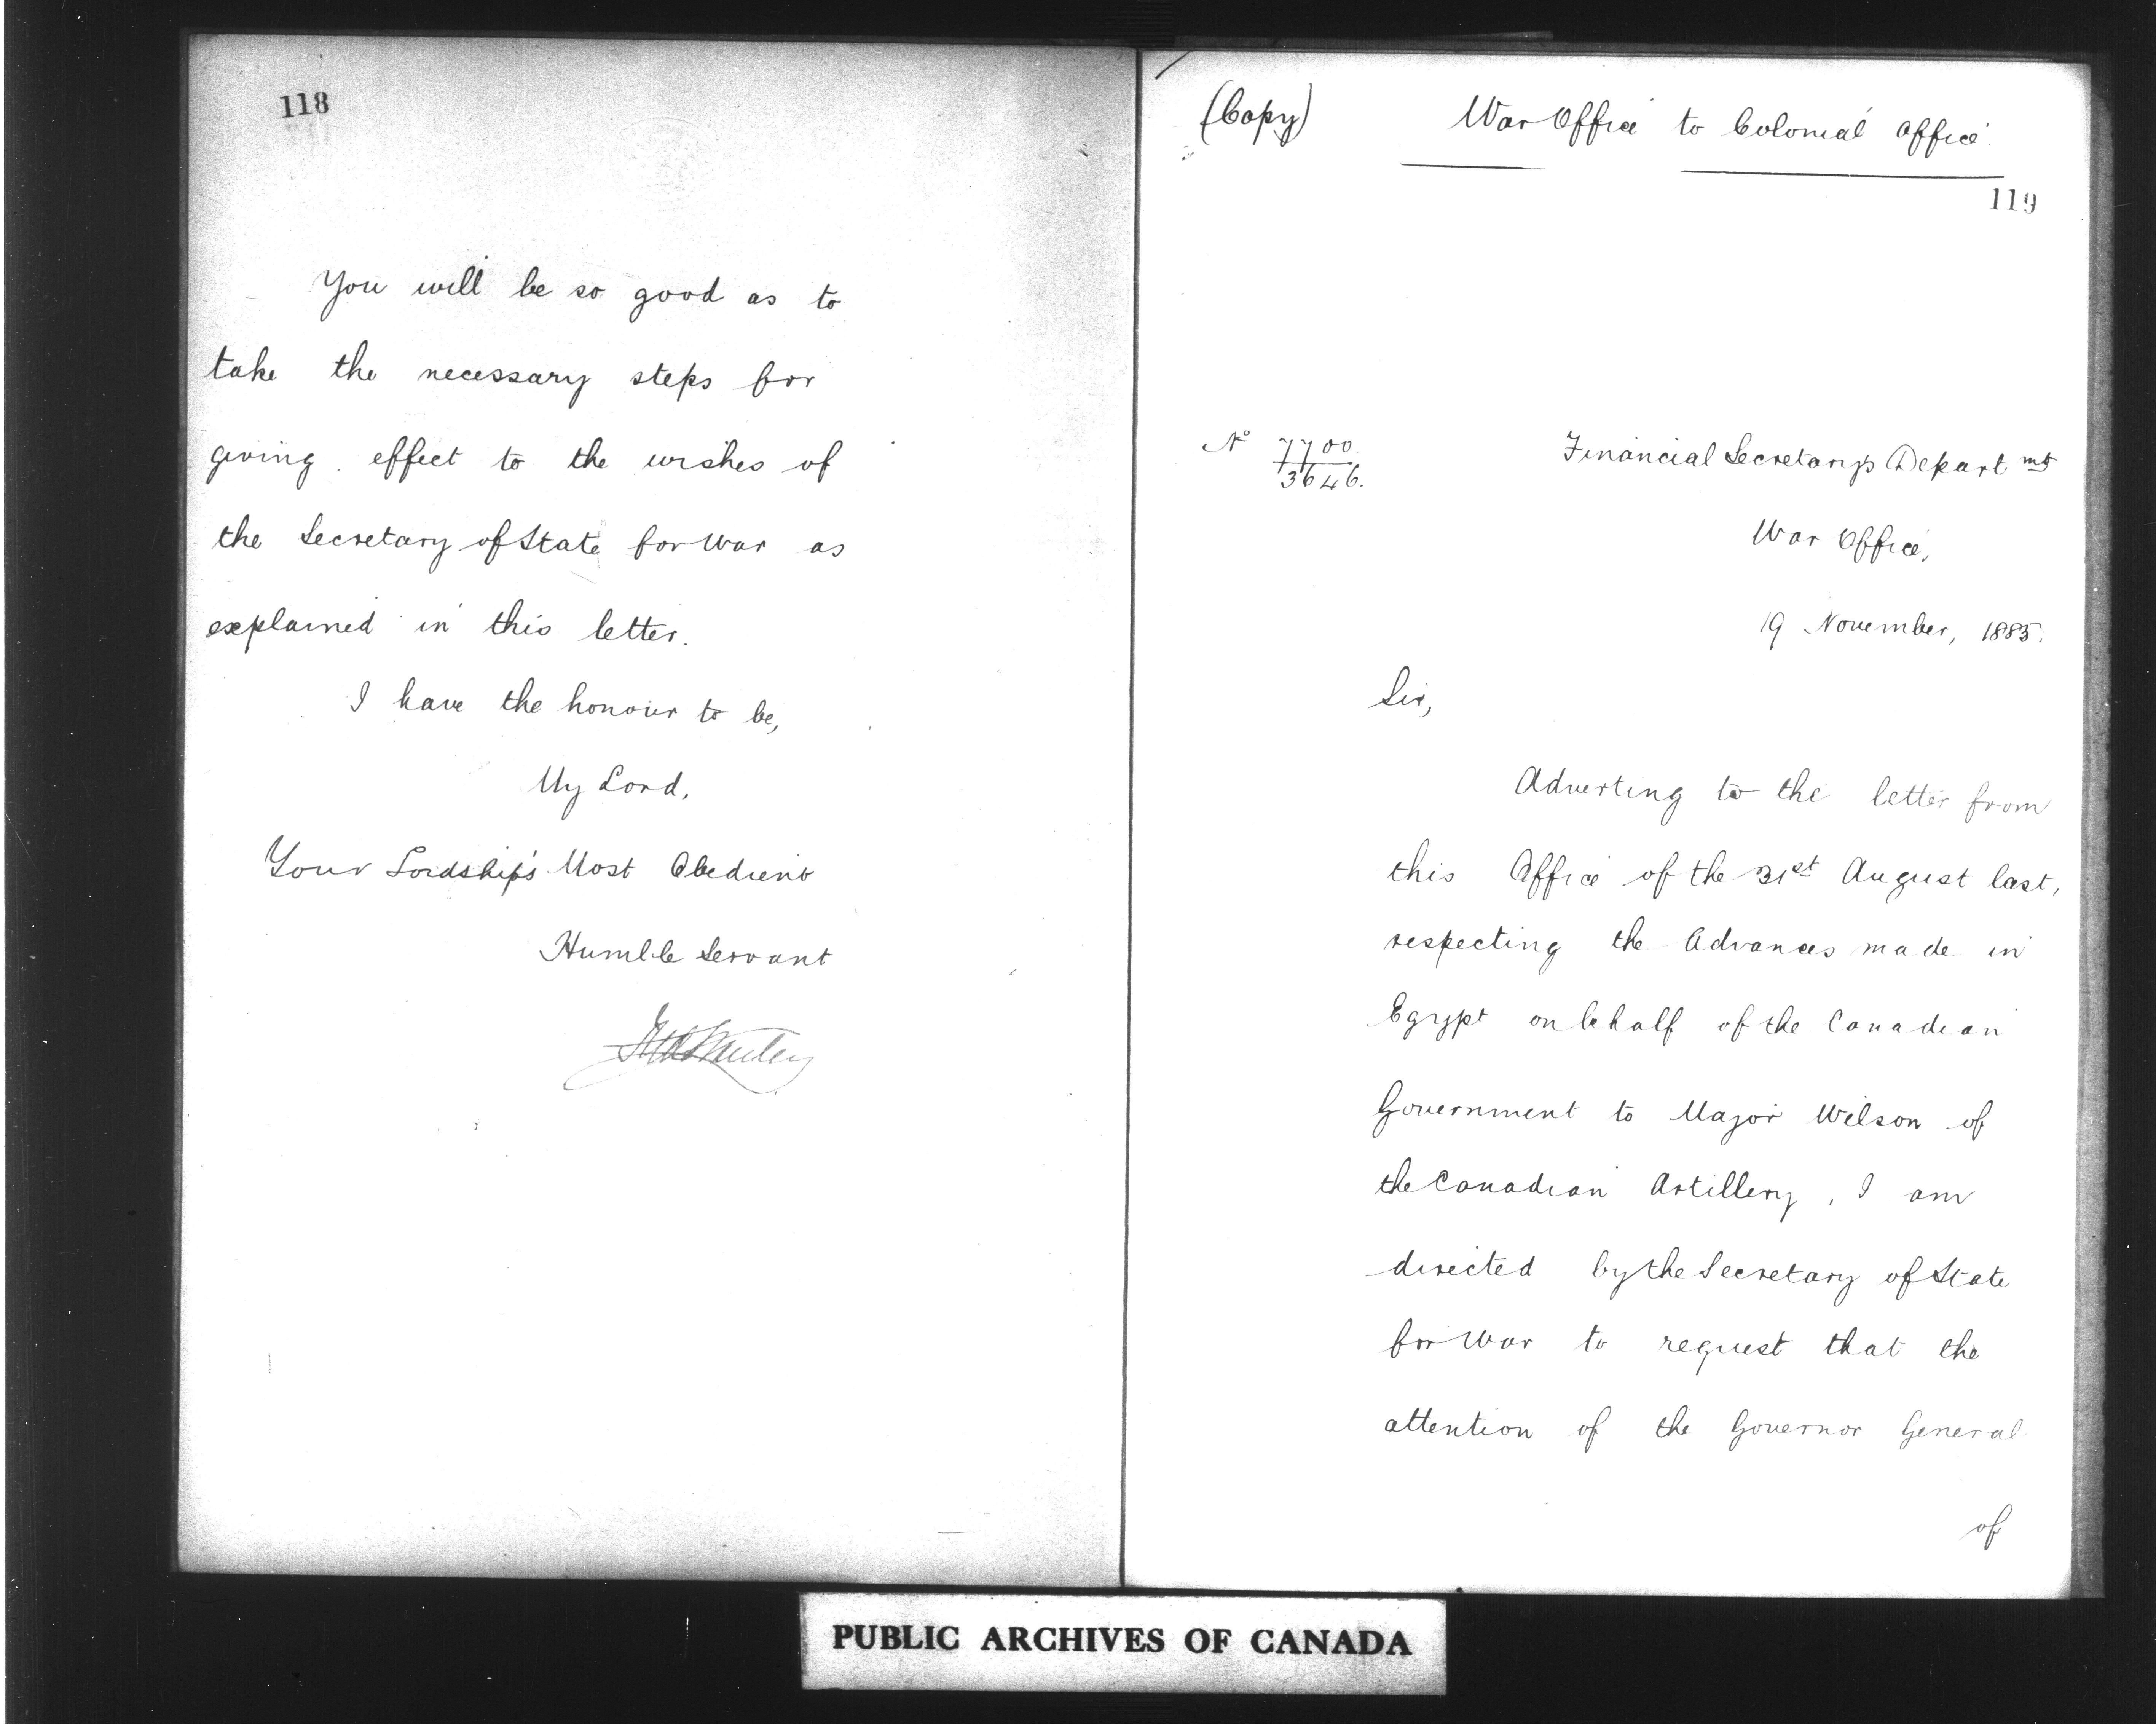 118
You will be so good as to
take the necessary steps for
giving effect to the wishes of
the Secretary of State for War as
explained in this letter.
I have the honour to be,
My Lord,
Your Lordship's Most Obedient
Humble Servant
(Copy) War Office to Colonial Office
119
No 7700
3646.
Financial Secretary's Departmt
War Office,
19 November, 1885.
Sir,
Adverting to the letter from
this Office of the 31st August last,
respecting the Advances made in
Egypt on behalf of the Canadian
Government to Major Wilson of
the Canadian Artillery, I am
directed by the Secretary of State
for War to request that the
attention of the Governor General
of
PUBLIC ARCHIVES OF CANADA